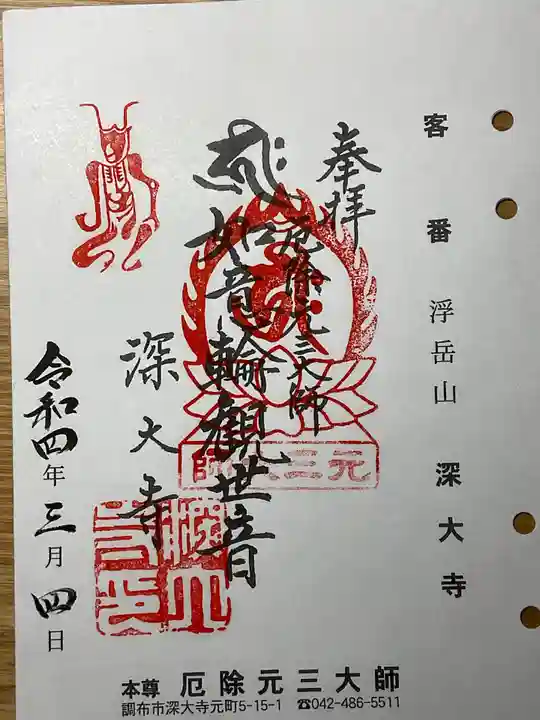 客番 浮岳山 深大寺
奉拝
厄除元三大師
如意輪觀世音
深大寺
令和四年三月四日
師大三元
本尊 厄除元三大師
調布市深大寺元町5-15-1 ☎042-486-5511